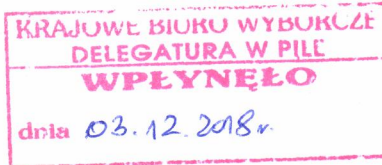 KRAJOWE BIURO WYBORCZE
DELEGATURA W PILE
WPŁYNĘŁO
dnia 03.12.2018r.